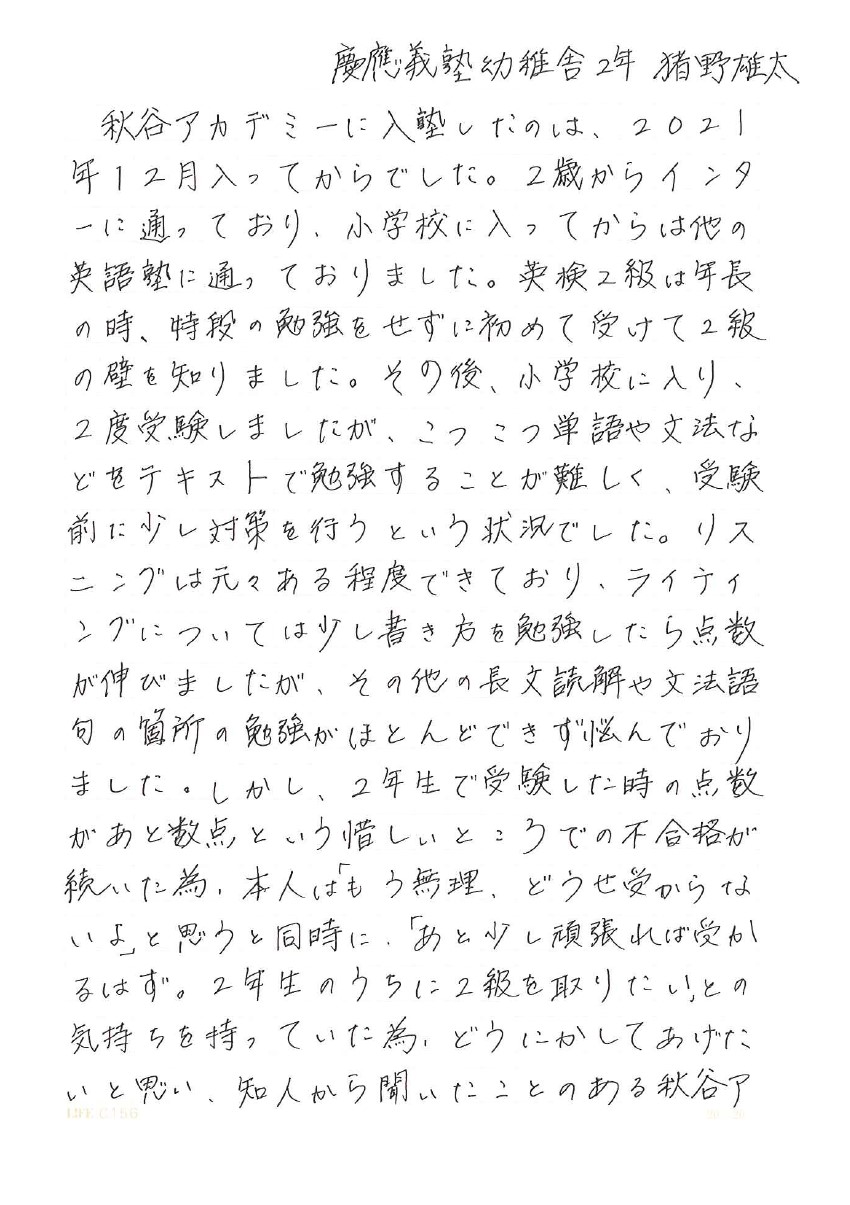 慶應義塾幼稚舎2年 猪野雄太
秋谷アカデミーに入塾したのは、2021
年12月入ってからでした。2歳からインタ
ーに通っており、小学校に入ってからは他の
英語塾に通っておりました。英検2級は年長
の時、特段の勉強をせずに初めて受けて2級
の壁を知りました。その後、小学校に入り、
2度受験しましたが、こつこつ単語や文法な
どをテキストで勉強することが難しく、受験
前に少し対策を行うという状況でした。リス
ニングは元々ある程度できており、ライティ
ングについては少し書き方を勉強したら点数
が伸びましたが、その他の長文読解や文法語
句の箇所の勉強がほとんどできず悩んでおり
ました。しかし、2年生で受験した時の点数
があと数点という惜しいところでの不合格が
続いた為、本人は「もう無理、どうせ受からな
いよ」と思うと同時に、「あと少し頑張れば受か
るはず。2年生のうちに2級を取りたい」との
気持ちを持っていた為、どうにかしてあげた
いと思い、知人から聞いたことのある秋谷ア
LIFE C156